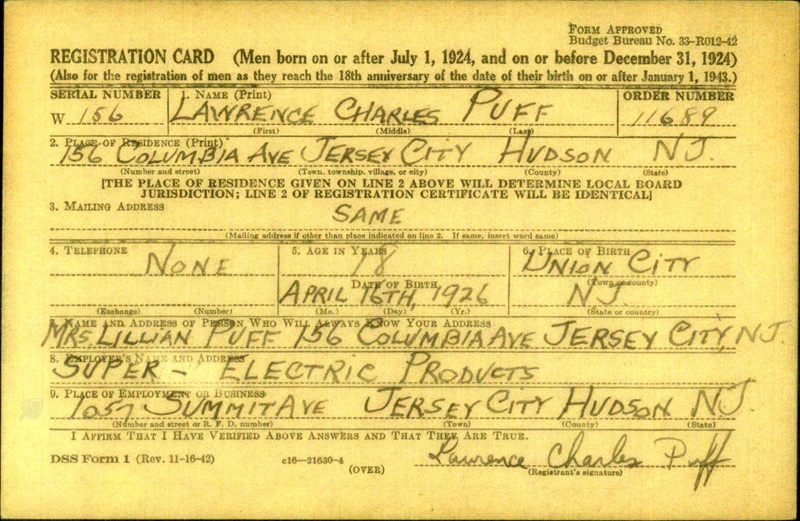 FORM APPROVED
Budget Bureau No. 33-R012-42
REGISTRATION CARD (Men born on or after July 1, 1924, and on or before December 31, 1924)
(Also for the registration of men as they reach the 18th anniversary of the date of their birth on or after January 1, 1943.)
SERIAL NUMBER 1. NAME (Print) ORDER NUMBER
W 156 LAWRENCE CHARLES PUFF 11689
(First) (Middle) (Last)
2. PLACE OF RESIDENCE (Print)
156 COLUMBIA AVE JERSEY CITY HUDSON NJ.
(Number and street) (Town, township, village, or city) (County) (State)
[THE PLACE OF RESIDENCE GIVEN ON LINE 2 ABOVE WILL DETERMINE LOCAL BOARD
JURISDICTION; LINE 2 OF REGISTRATION CERTIFICATE WILL BE IDENTICAL]
3. MAILING ADDRESS
SAME
(Mailing address if other than place indicated on line 2. If same, insert word same)
4. TELEPHONE 5. AGE IN YEARS 6. PLACE OF BIRTH
NONE 18 UNION CITY
DATE OF BIRTH (Town or county)
APRIL 16TH, 1926 NJ.
(Exchange) (Number) (Mo.) (Day) (Yr.) (State or country)
7. NAME AND ADDRESS OF PERSON WHO WILL ALWAYS KNOW YOUR ADDRESS
MRS LILLIAN PUFF 156 COLUMBIA AVE JERSEY CITY, NJ.
8. EMPLOYER'S NAME AND ADDRESS
SUPER - ELECTRIC PRODUCTS
9. PLACE OF EMPLOYMENT OR BUSINESS
1057 SUMMIT AVE JERSEY CITY HUDSON NJ.
(Number and street or R. F. D. number) (Town) (County) (State)
I AFFIRM THAT I HAVE VERIFIED ABOVE ANSWERS AND THAT THEY ARE TRUE.
DSS Form 1 (Rev. 11-16-42) c16—21630-4 Lawrence Charles Puff
(OVER) (Registrant's signature)